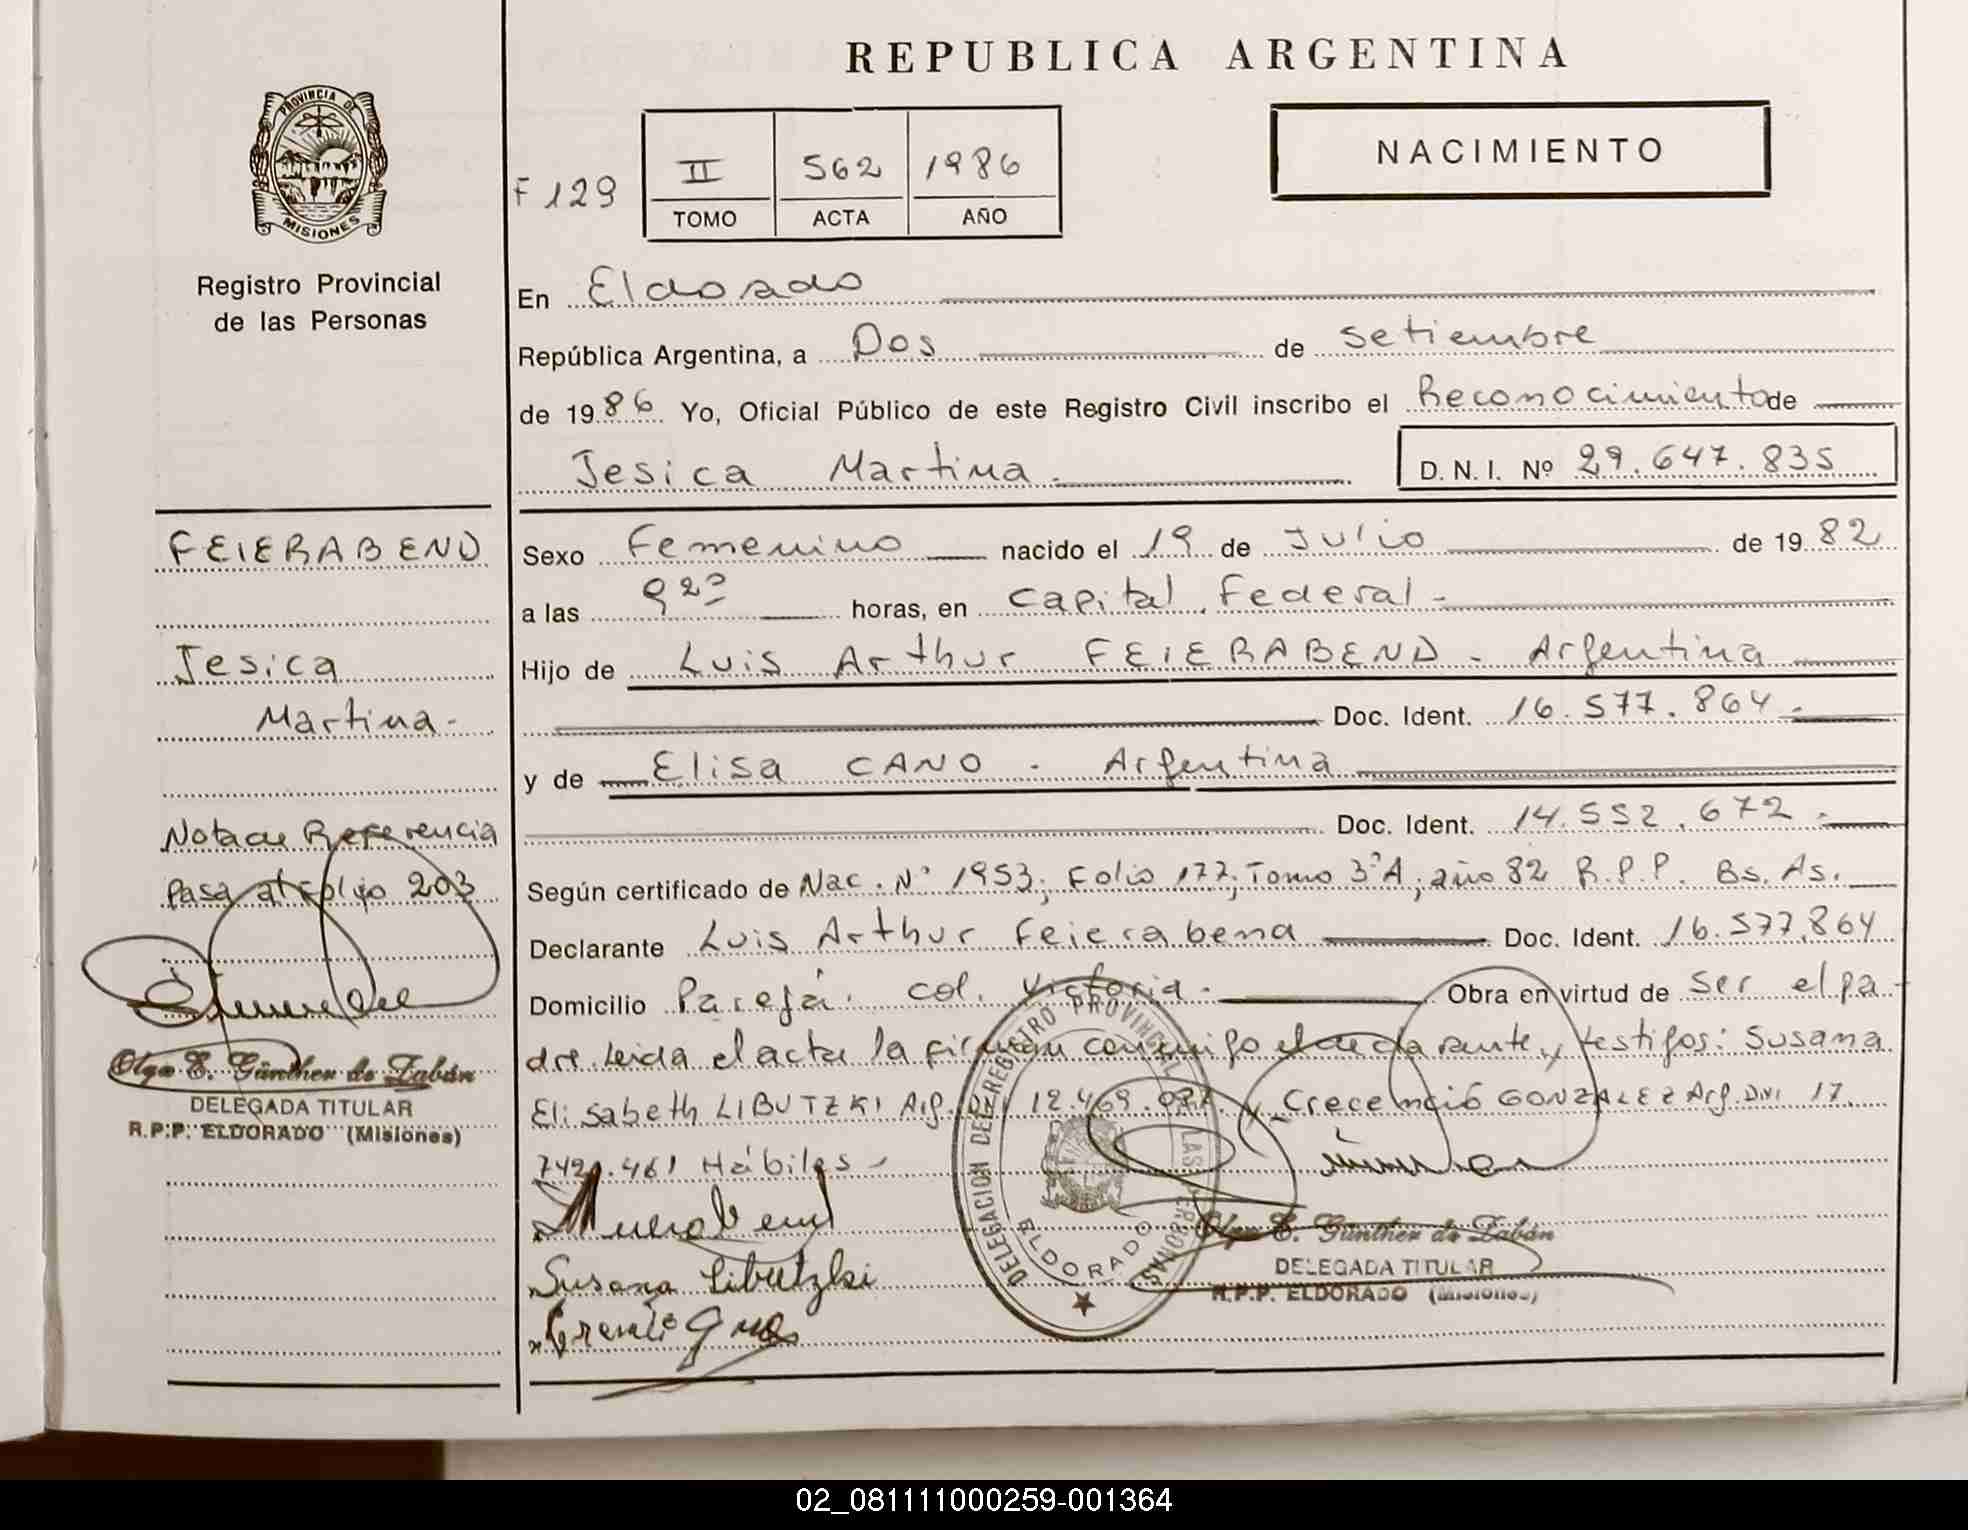 REPUBLICA ARGENTINA
PROVINCIA DE
MISIONES
Registro Provincial
de las Personas
F 129
II 562 1986
TOMO ACTA AÑO
NACIMIENTO
En Eldorado
República Argentina, a Dos de setiembre
de 1986 Yo, Oficial Público de este Registro Civil inscribo el Reconocimiento de
Jesica Martina.
D. N. I. Nº 29.647.835
FEIERABEND
Jesica
Martina-
Nota de Referencia
Pasa al Folio 203
Olga E. Günther de Zabán
DELEGADA TITULAR
R.P.P. ELDORADO (Misiones)
Sexo Femenino nacido el 19 de Julio de 1982
a las 9 20 horas, en Capital Federal-
Hijo de Luis Arthur FEIERABEND - Argentina
Doc. Ident. 16.577.864-
y de Elisa CANO - Argentina
Doc. Ident. 14.552.672-
Según certificado de Nac. Nº 1953, Folio 177, Tomo 3ºA, año 82 R.P.P. Bs. As.
Declarante Luis Arthur Feierabend Doc. Ident. 16.577.864
Domicilio Parejá. col. Victoria- Obra en virtud de ser el pa-
dre. Leida el acta la firman conmigo el declarante y testigos: Susana
Elisabeth LIBUTZKI Arg. DNI 12.469.077. y Crecencio GONZALEZ Arg. DNI 17.
742.461 Hábiles-
Susana Libutzki
DELEGACION DE REGISTRO PROVINCIAL LAS PERSONAS
ELDORADO
Olga E. Günther de Zabán
DELEGADA TITULAR
R.P.P. ELDORADO (Misiones)
02_081111000259-001364